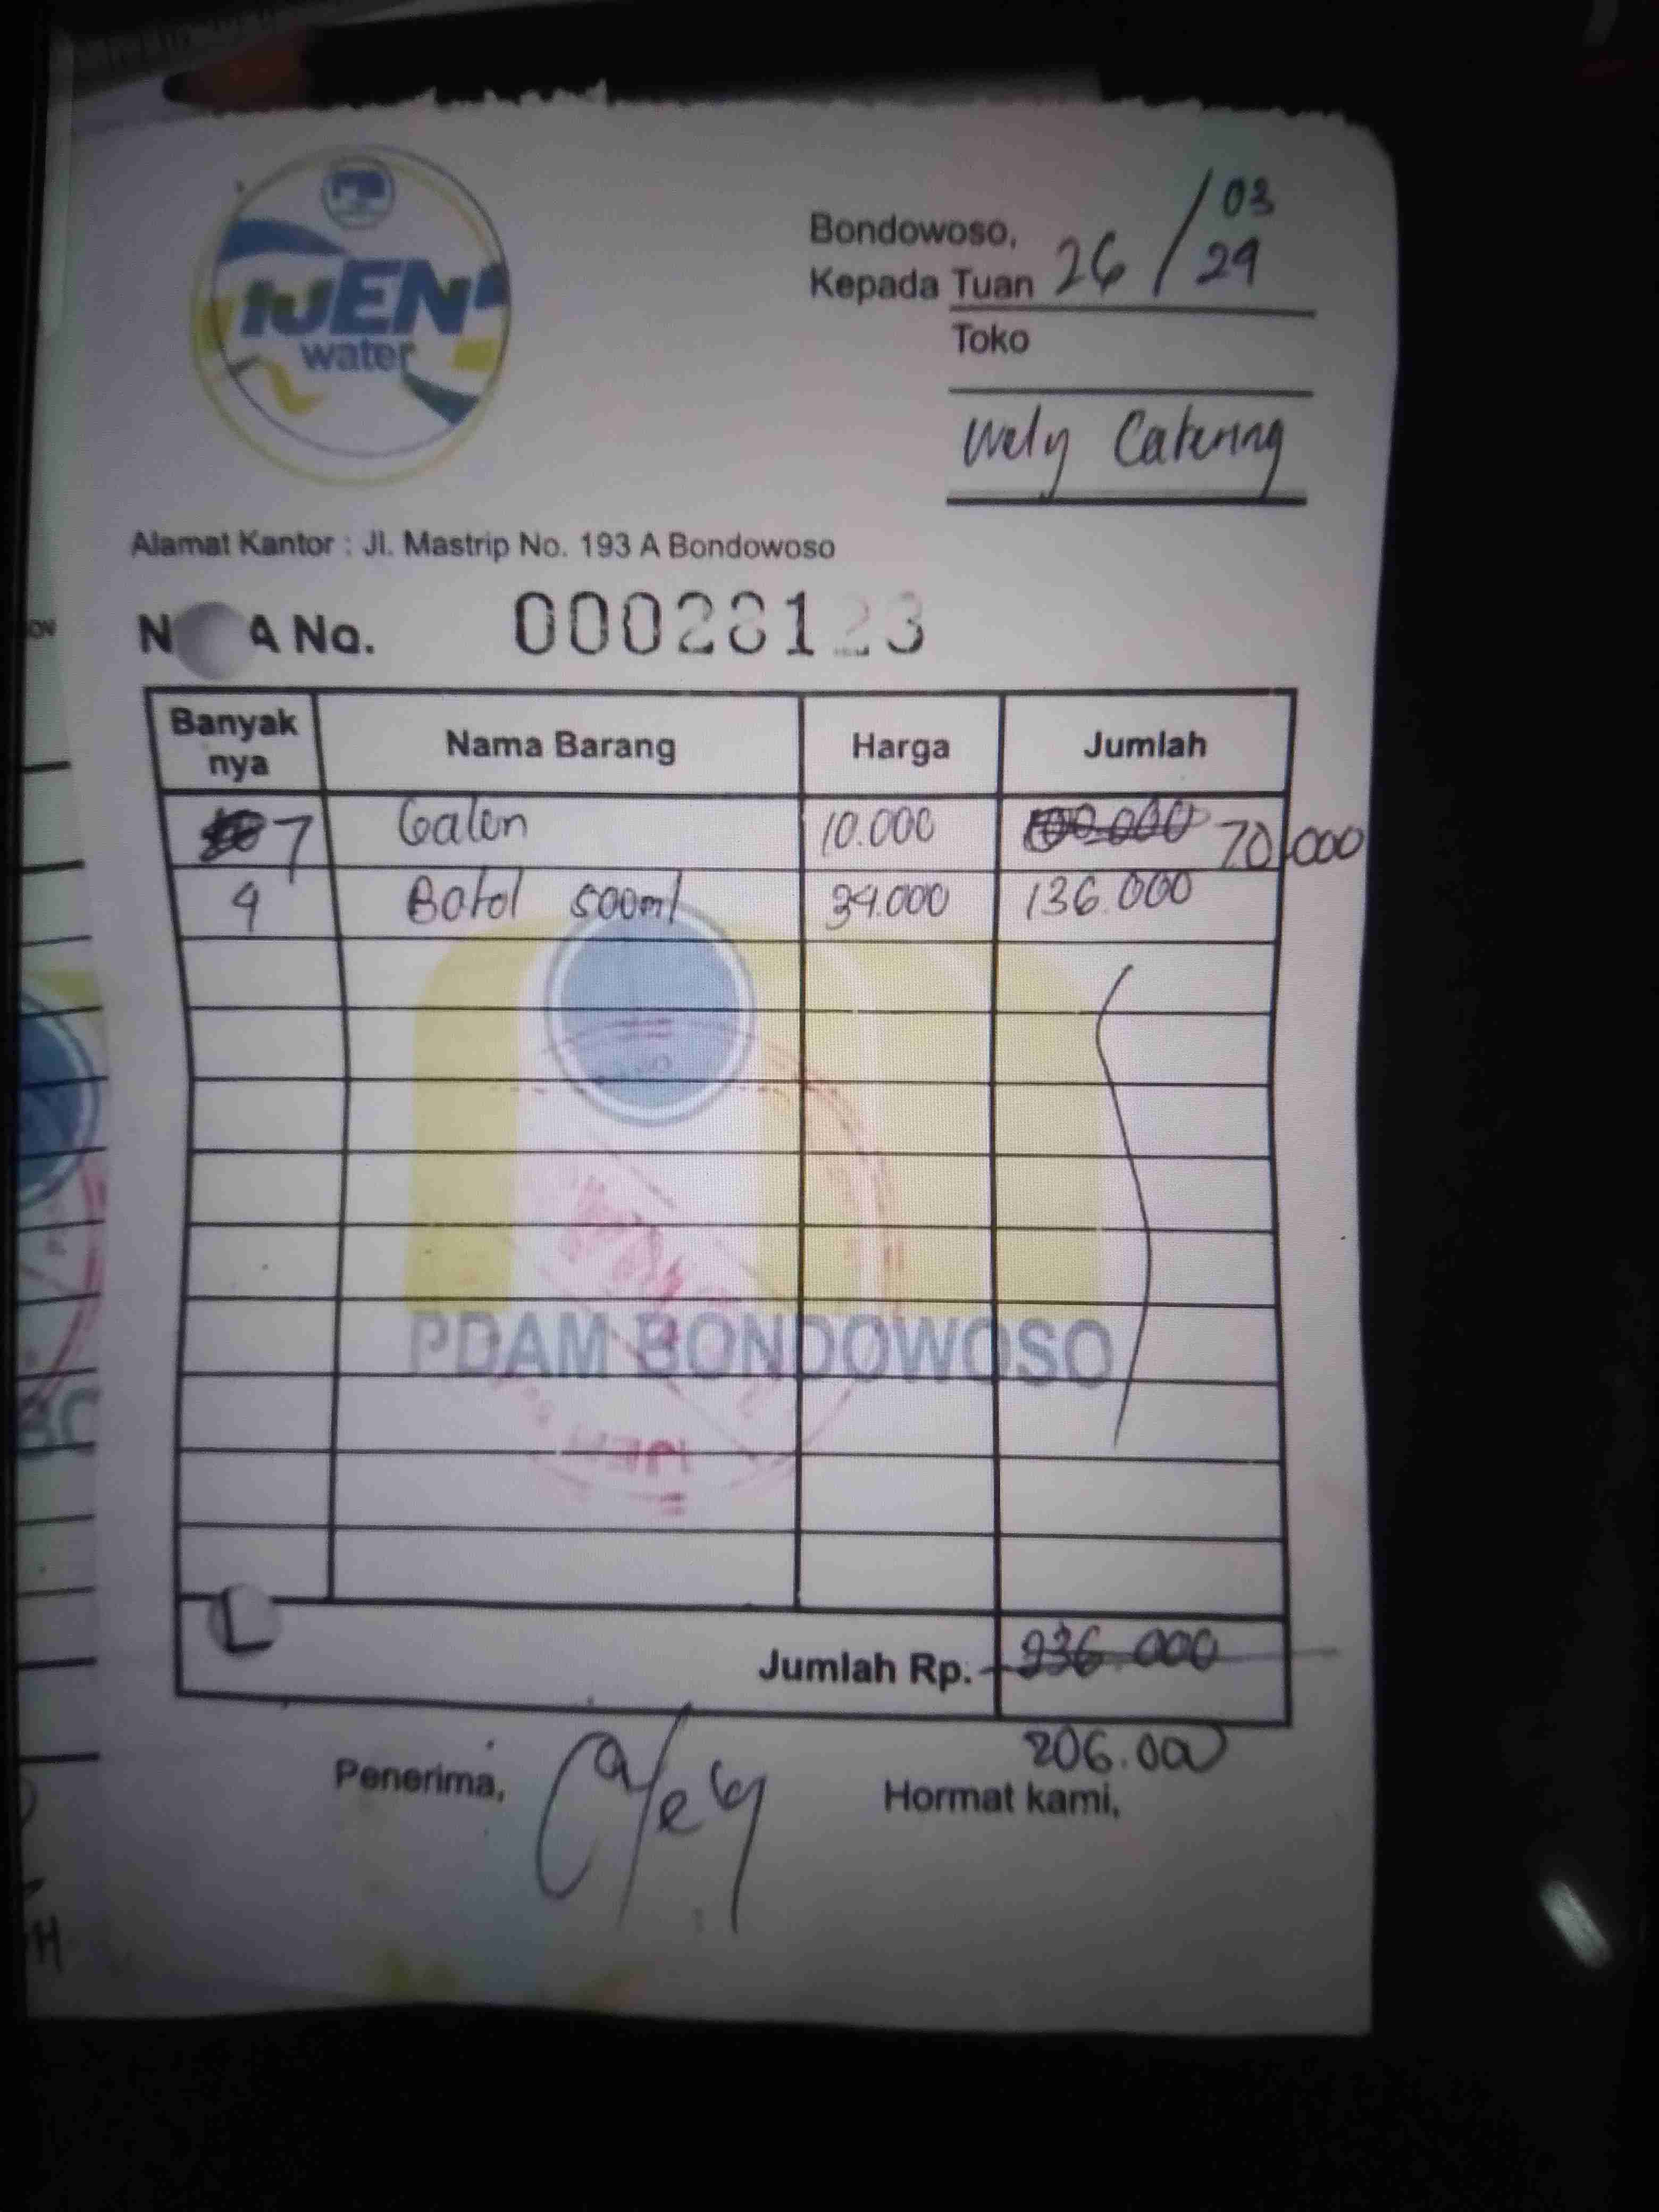 IJEN
water
Bondowoso,
26/03
Kepada Tuan
24
Toko
Wely Catering
Alamat Kantor : Jl. Mastrip No. 193 A Bondowoso
N A No. 00028123
Banyak nya Nama Barang Harga Jumlah
7 Galon 10.000 100.000 70.000
4 Botol 500ml 34.000 136.000
PDAM BONDOWOSO
IJEN
L
Jumlah Rp. 236.000
206.000
Penerima, Hormat kami,